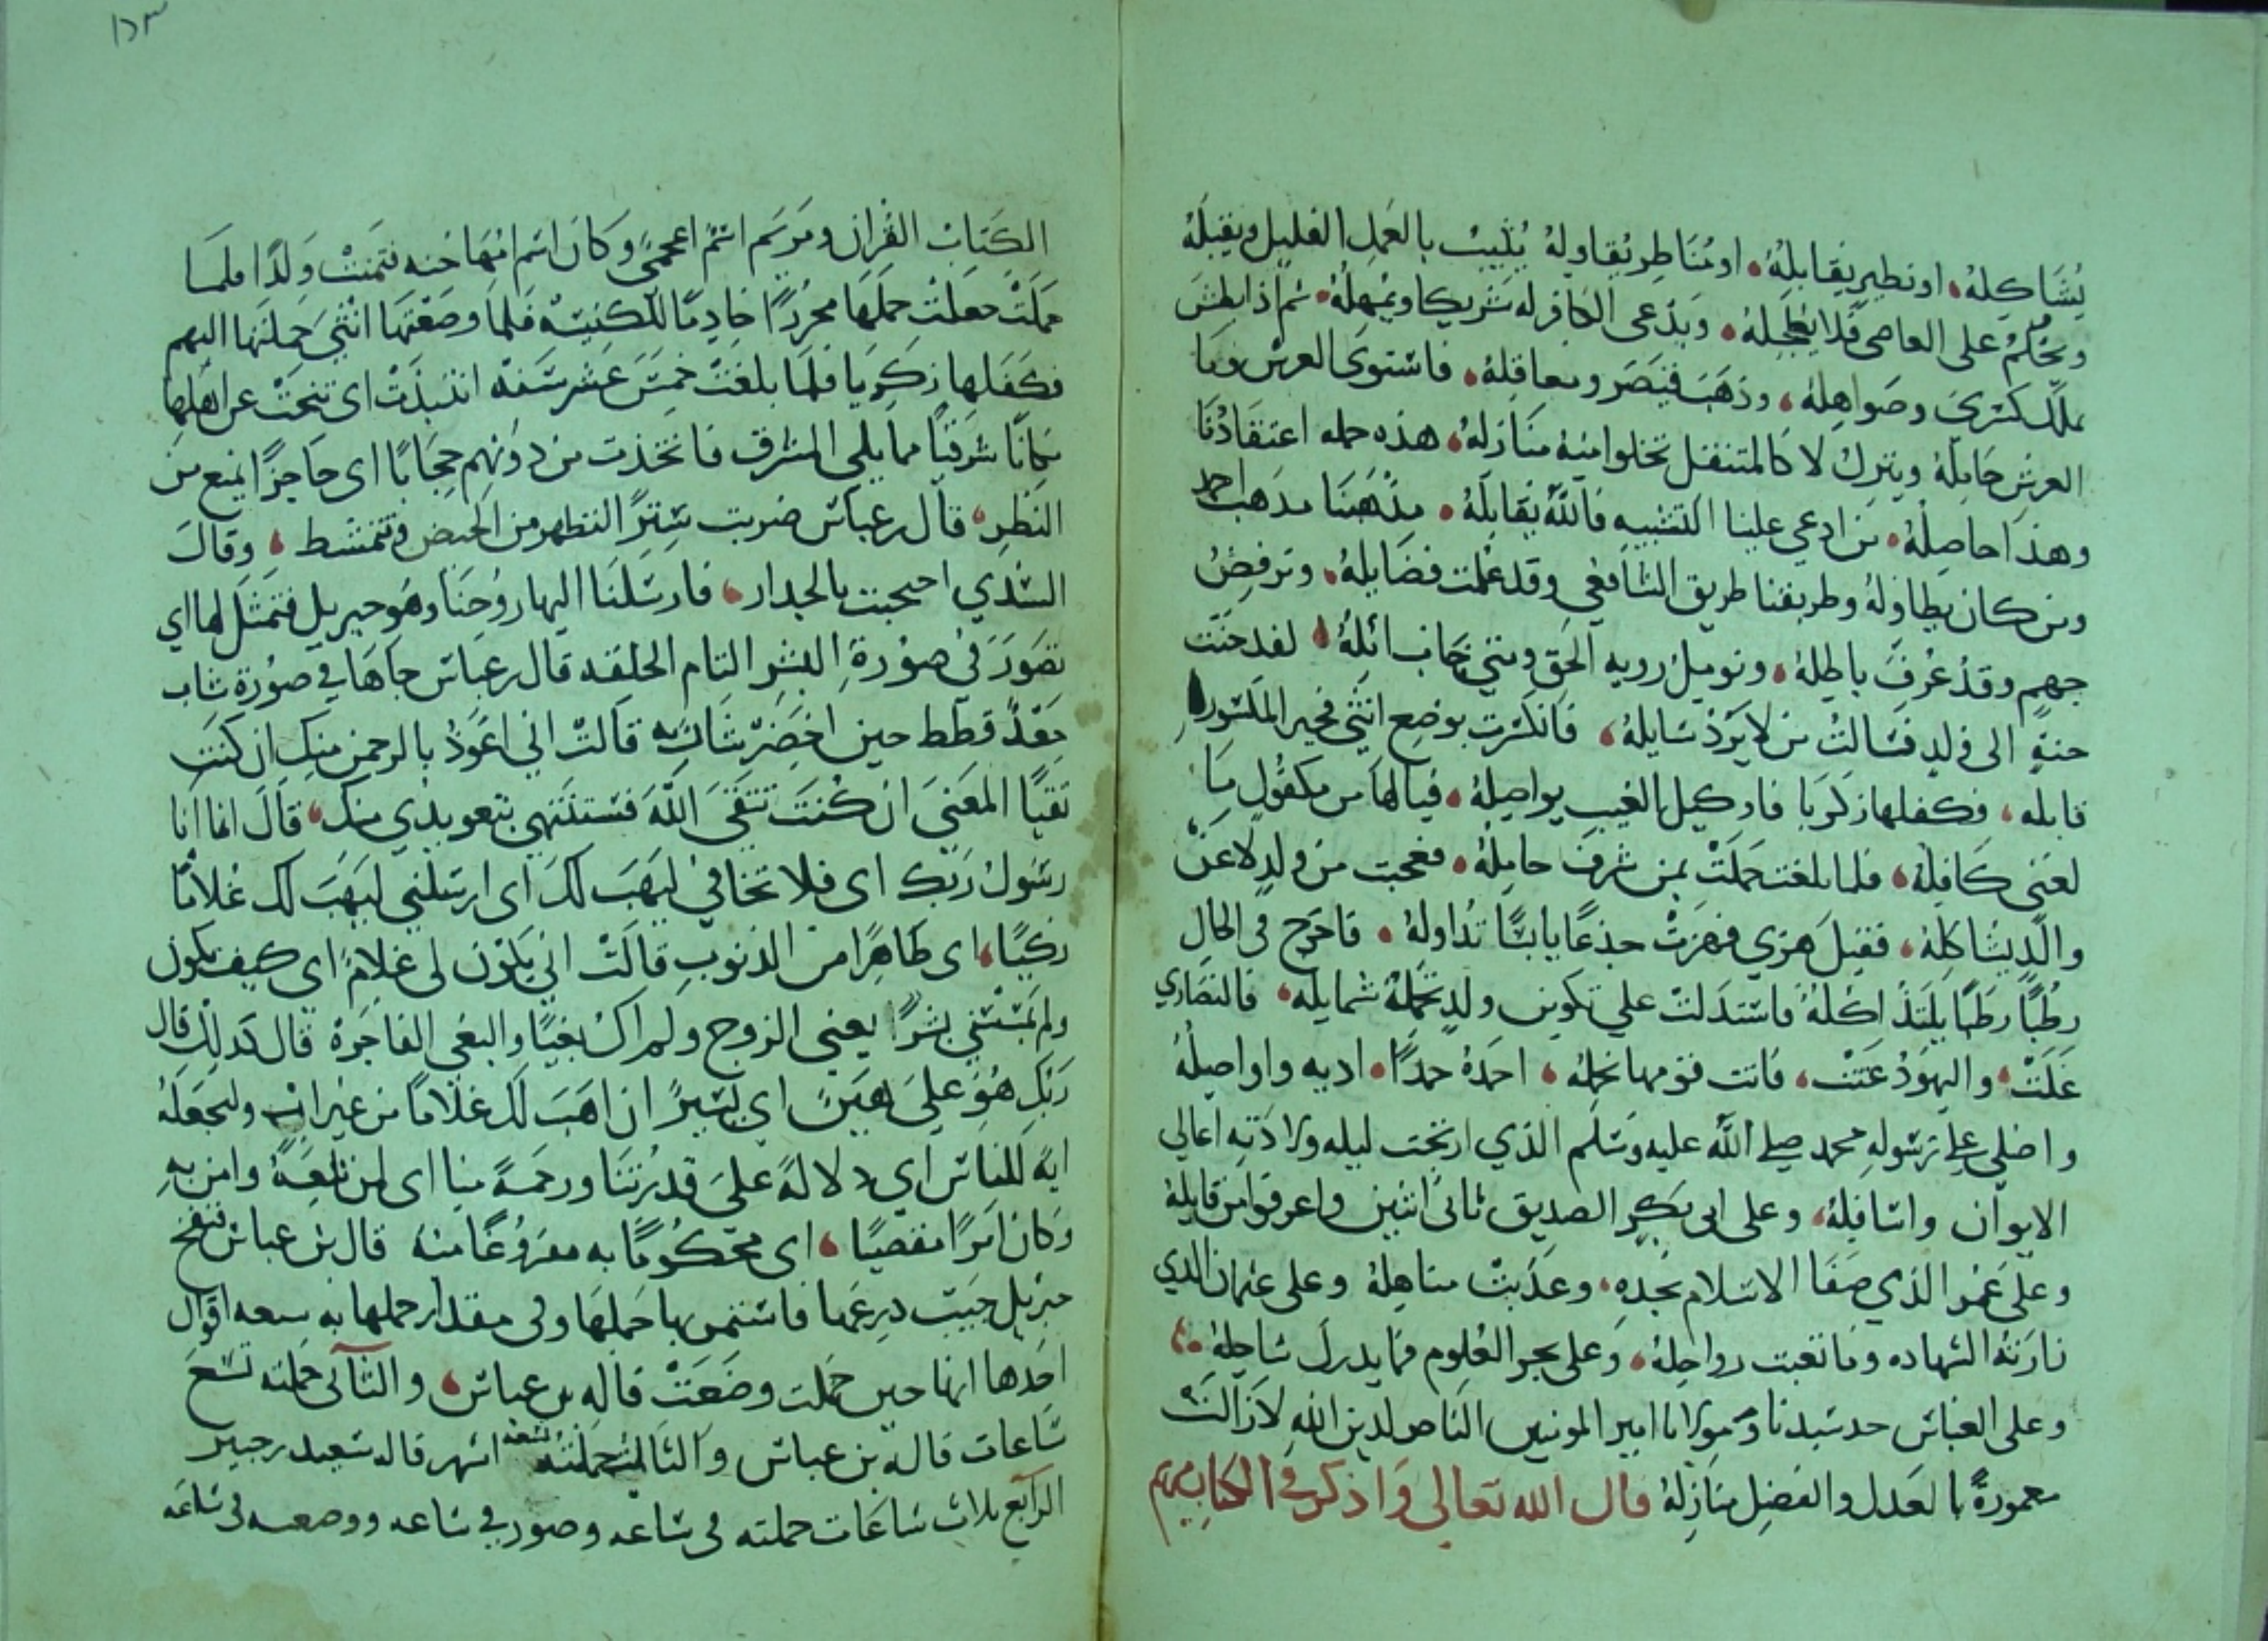 يُشَاكِلهُ، او نطير يقابلهُ، او مُنَاطِر يُقاوله يُثيبُ بالعَملِ القليل ويقبلهُ
ويَحْلُمُ على العاصي فلا يعاجلهُ، ويَدْعى الكافر له شريكا ويُمْهلهُ، ثم اذا بطش
هلك كسْرَى وصَواهِلهُ، وذهَبَ قيصَر ومعاقِلهُ، فاستوى العرش وما
العرش حَامِلهُ وينزل لا كالمتنقل تخلوا منهُ منَازلهُ، هذه جمله اعتقادُنَا
وهذا حاصِلهُ، من ادعى علينا التشبيه فاللّه يقابلهُ، مذهبنا مذهب احمد
ومن كان يطاولهُ وطريقنا طريق الشافعي وقد عُلمت فضايلهُ، ونرفضُ
جهم وقدْ عُرفَ باطِلهُ، ونوميل رويه الحق ومتى خاب املهُ، لقد حنّت
حنة الى ولدٍ فسَالتْ من لا يَرُدّ سَايلهُ، فانكسَرت بوضع انثى فجبر المكسور
قابله، فكفلها زكريا فاذ وكيل الغيب يواصلهُ، فيا لها من مكفُولٍ مَا
لعَنَى كَافِلهُ، فلما بلغت حَمَلَتْ بمن شرفَ حاملهُ، فعجبت من ولدٍ لا عَنْ
والدٍ يشاكِلهُ، فقيلَ هزي فهزتْ جذعًا يابسًا تُداولهُ، فاخرج في الحالِ
رُطبًا رَطبًا يلتذ اكلهُ فاستدلتْ علي تكوين ولدٍ تحملهُ شمايله، فالنصَاري
غلَتْ، واليهوُدُ عَتَتْ، فاتت به قومها تحمله، احمَدهُ حمدًا، اديه واواصلهُ
واصلي على رسُولهِ محمد صلى الله عليه وسَلم الذي ارتجت ليله ولادَتِه اعالي
الايوان واسَافِلهُ، وعلى ابي بكرٍ الصديق ثاني اثنين واعرفوا من قايلهُ
وعلى عمَر الذي صَفَا الاسلام بجدِهِ، وعذُبتْ مناهِلهُ وعلى عثمان الذي
زارته الشهاده وما تعبت رواحِلهُ، وعلى بحر العُلوم فما يدرك ساحِلهُ
وعلى العباس جد سَيدنا ومولانا امير المومنين الناصر لدين الله لا زالت
معمورةً بالعَدل والفضل منَازلهُ قال الله تعالى وَاذكر في الكتاب مريم
الكتابُ القُران ومَريَم اسْم اعجميٌ وكانَ اسم امّهَا حَنه فتمنتْ وَلدًا فلمَا
حملَتْ جعلت حملهَا محرّرًا خادِمًا للكنيسَة فلما وضعَتهَا انثى حَملَتها اليهم
فكفلها زكريا فلما بلغتْ خمسَ عشر سَنه انتبذَتْ اي تنحتْ عن اهلها
مكانًا شرقيًا مما يلي المشرق فاتخذت من دُونهم حِجَابًا اي حَاجزًا يمنع من
النظرِ، قال بن عباس ضربت سِترًا لتتطهر من الحيض وتمتشط، وقال
السُّدي احتجبت بالجدار، فارسَلنَا اليها روُحَنا وهُو جبريل فتمثَل لها اي
تصَورَ في صوُرةِ البشر التام الخلقه قال بن عباس جَاهَا في صوُرة شاب
جَعْدٍ قطط حين اخضَرّ شاربه قالتْ اني اعَوذُ بالرحمن منك ان كنت
تقيًا المعَنى ان كنتَ تتقي اللّهَ فستنتهي بتعويذي منك، قال انما انا
رسُولُ رَبّك اي فلا تخافي ليهَبَ لكَ اي ارسَلني ليَهَبَ لك غُلامًا
زكيًا، اي طَاهِرًا من الذنوبِ قالتْ اني يكوُن لي غلامٌ اي كيف يكون
ولم يمسَسْني بشرٌ يعني الزوج ولم اك بغيًا والبغي الفاجرة قال كذلك قال
رَبّكِ هُوَ عَليَّ هَينٌ اي يَسيرٌ ان اهَبَ لك غلامًا من غير اب ولنجعَلهُ
ايه للناس اي دلالهً علي قدرُتنَا ورحمَةً منا اي لمن تبعَهُ وامن بهِ
وكان امرًا مقضيًا، اي محكوُمًا به مفروُغًا منهُ قال بن عباس فنفخ
جبريل في جَيب درعها فاستمر بها حملهَا وفي مقدار حملها به سبعه اقوال
احدها انها حين حملت وضَعَتْ قاله بن عباس، والثاني حملته تسَعَ
سَاعات قاله بن عباس والثالث حملته تسعة اشهر قاله سَعيد بن جبير
الرابع ثلاث سَاعَات حملته في سَاعه وصور في سَاعه ووضعته في سَاعَه